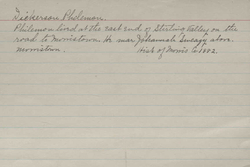 Dickerson Philemon.
Philemon lived at the east end of Sterling Valley on the
road to Morristown. He mar. Johannah above.
Morristown. Hist of Morris Co 1882.